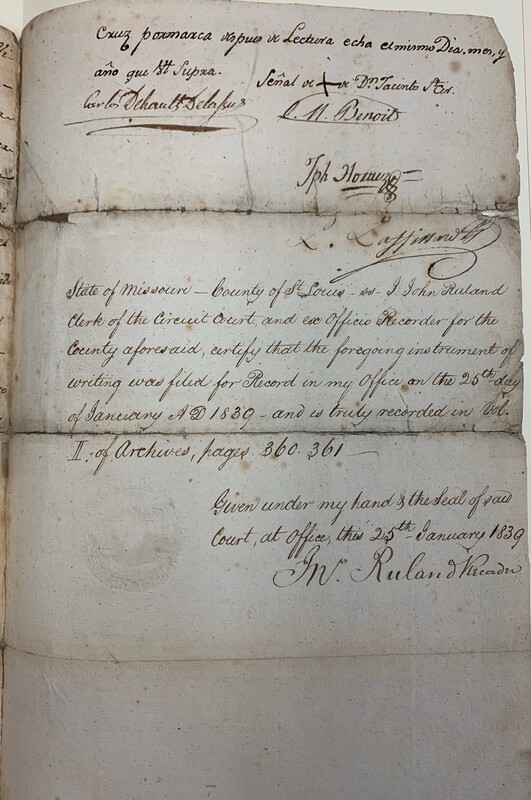 Cruz por marca despues de Lectura echa el mismo Dia, mes, y
año que Ut Supra.
Señal de + de Dn. Jacinto St. Cir.
Carlos Dehault Delassus
C. M. Benoit
Jph Hortiz
State of Missouri — County of St. Louis — ss — I John Ruland
Clerk of the Circuit Court, and ex Officio Recorder for the
County aforesaid, certify that the foregoing instrument of
writing was filed for Record in my Office on the 25th day
of January A D 1839 – and is truly recorded in Vol.
II. of Archives, pages 360. 361 —
Given under my hand & the Seal of said
Court, at Office, this 25th January 1839
Jno. Ruland Recorder